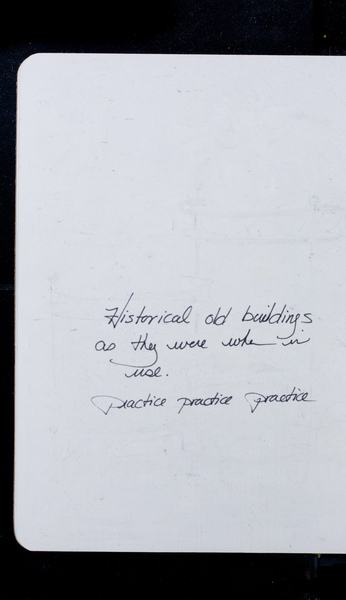 Historical old buildings
as they were when in
use.
practice practice practice